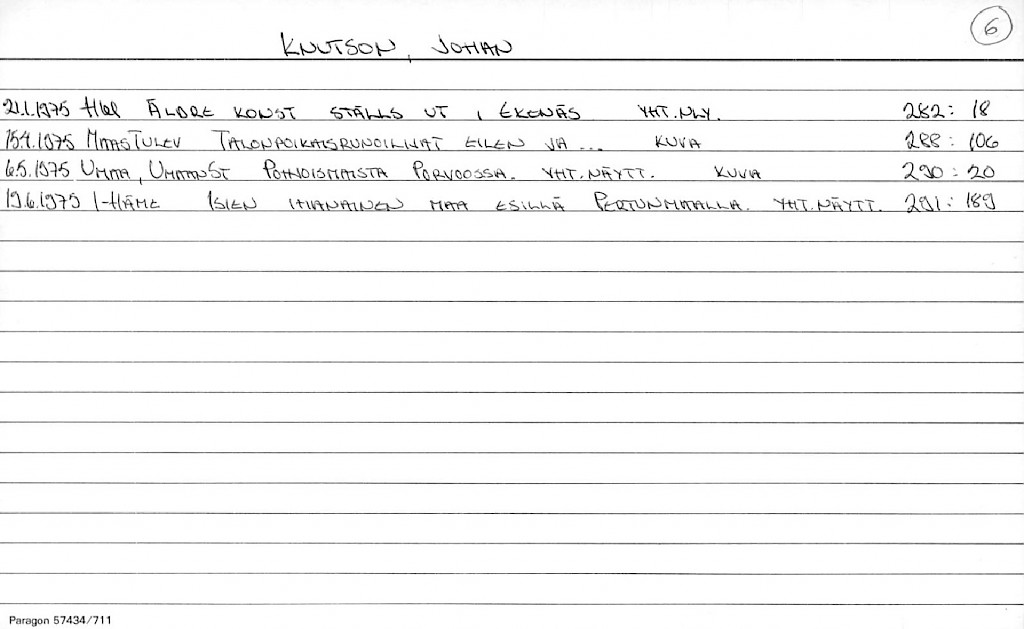 6
KNUTSON, JOHAN
21.1.1975 Hbl ÄLDRE KONST STÄLLS UT I EKENÄS YHT.NLY. 282: 18
15.4.1975 MAASTULEV TALONPOIKAISRUNOILIJAT EILEN JA ... KUVA 288: 106
6.5.1975 UMAA, UMAANST POHJOISMAISTA PORVOOSSA. YHT.NÄYTT. KUVIA 290: 20
19.6.1975 I-HÄME ISIEN IHANAINEN MAA ESILLÄ PERTUNMAALLA. YHT.NÄYTT. 291: 189
Paragon 57434/711